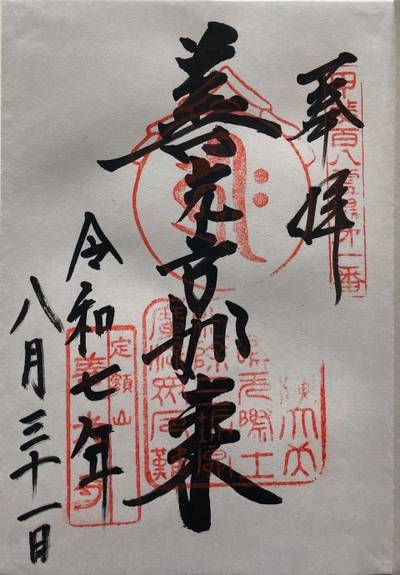 甲斐百八霊場第一番
奉拝
善光寺如来
令和七年
八月三十一日
定額山
善光寺